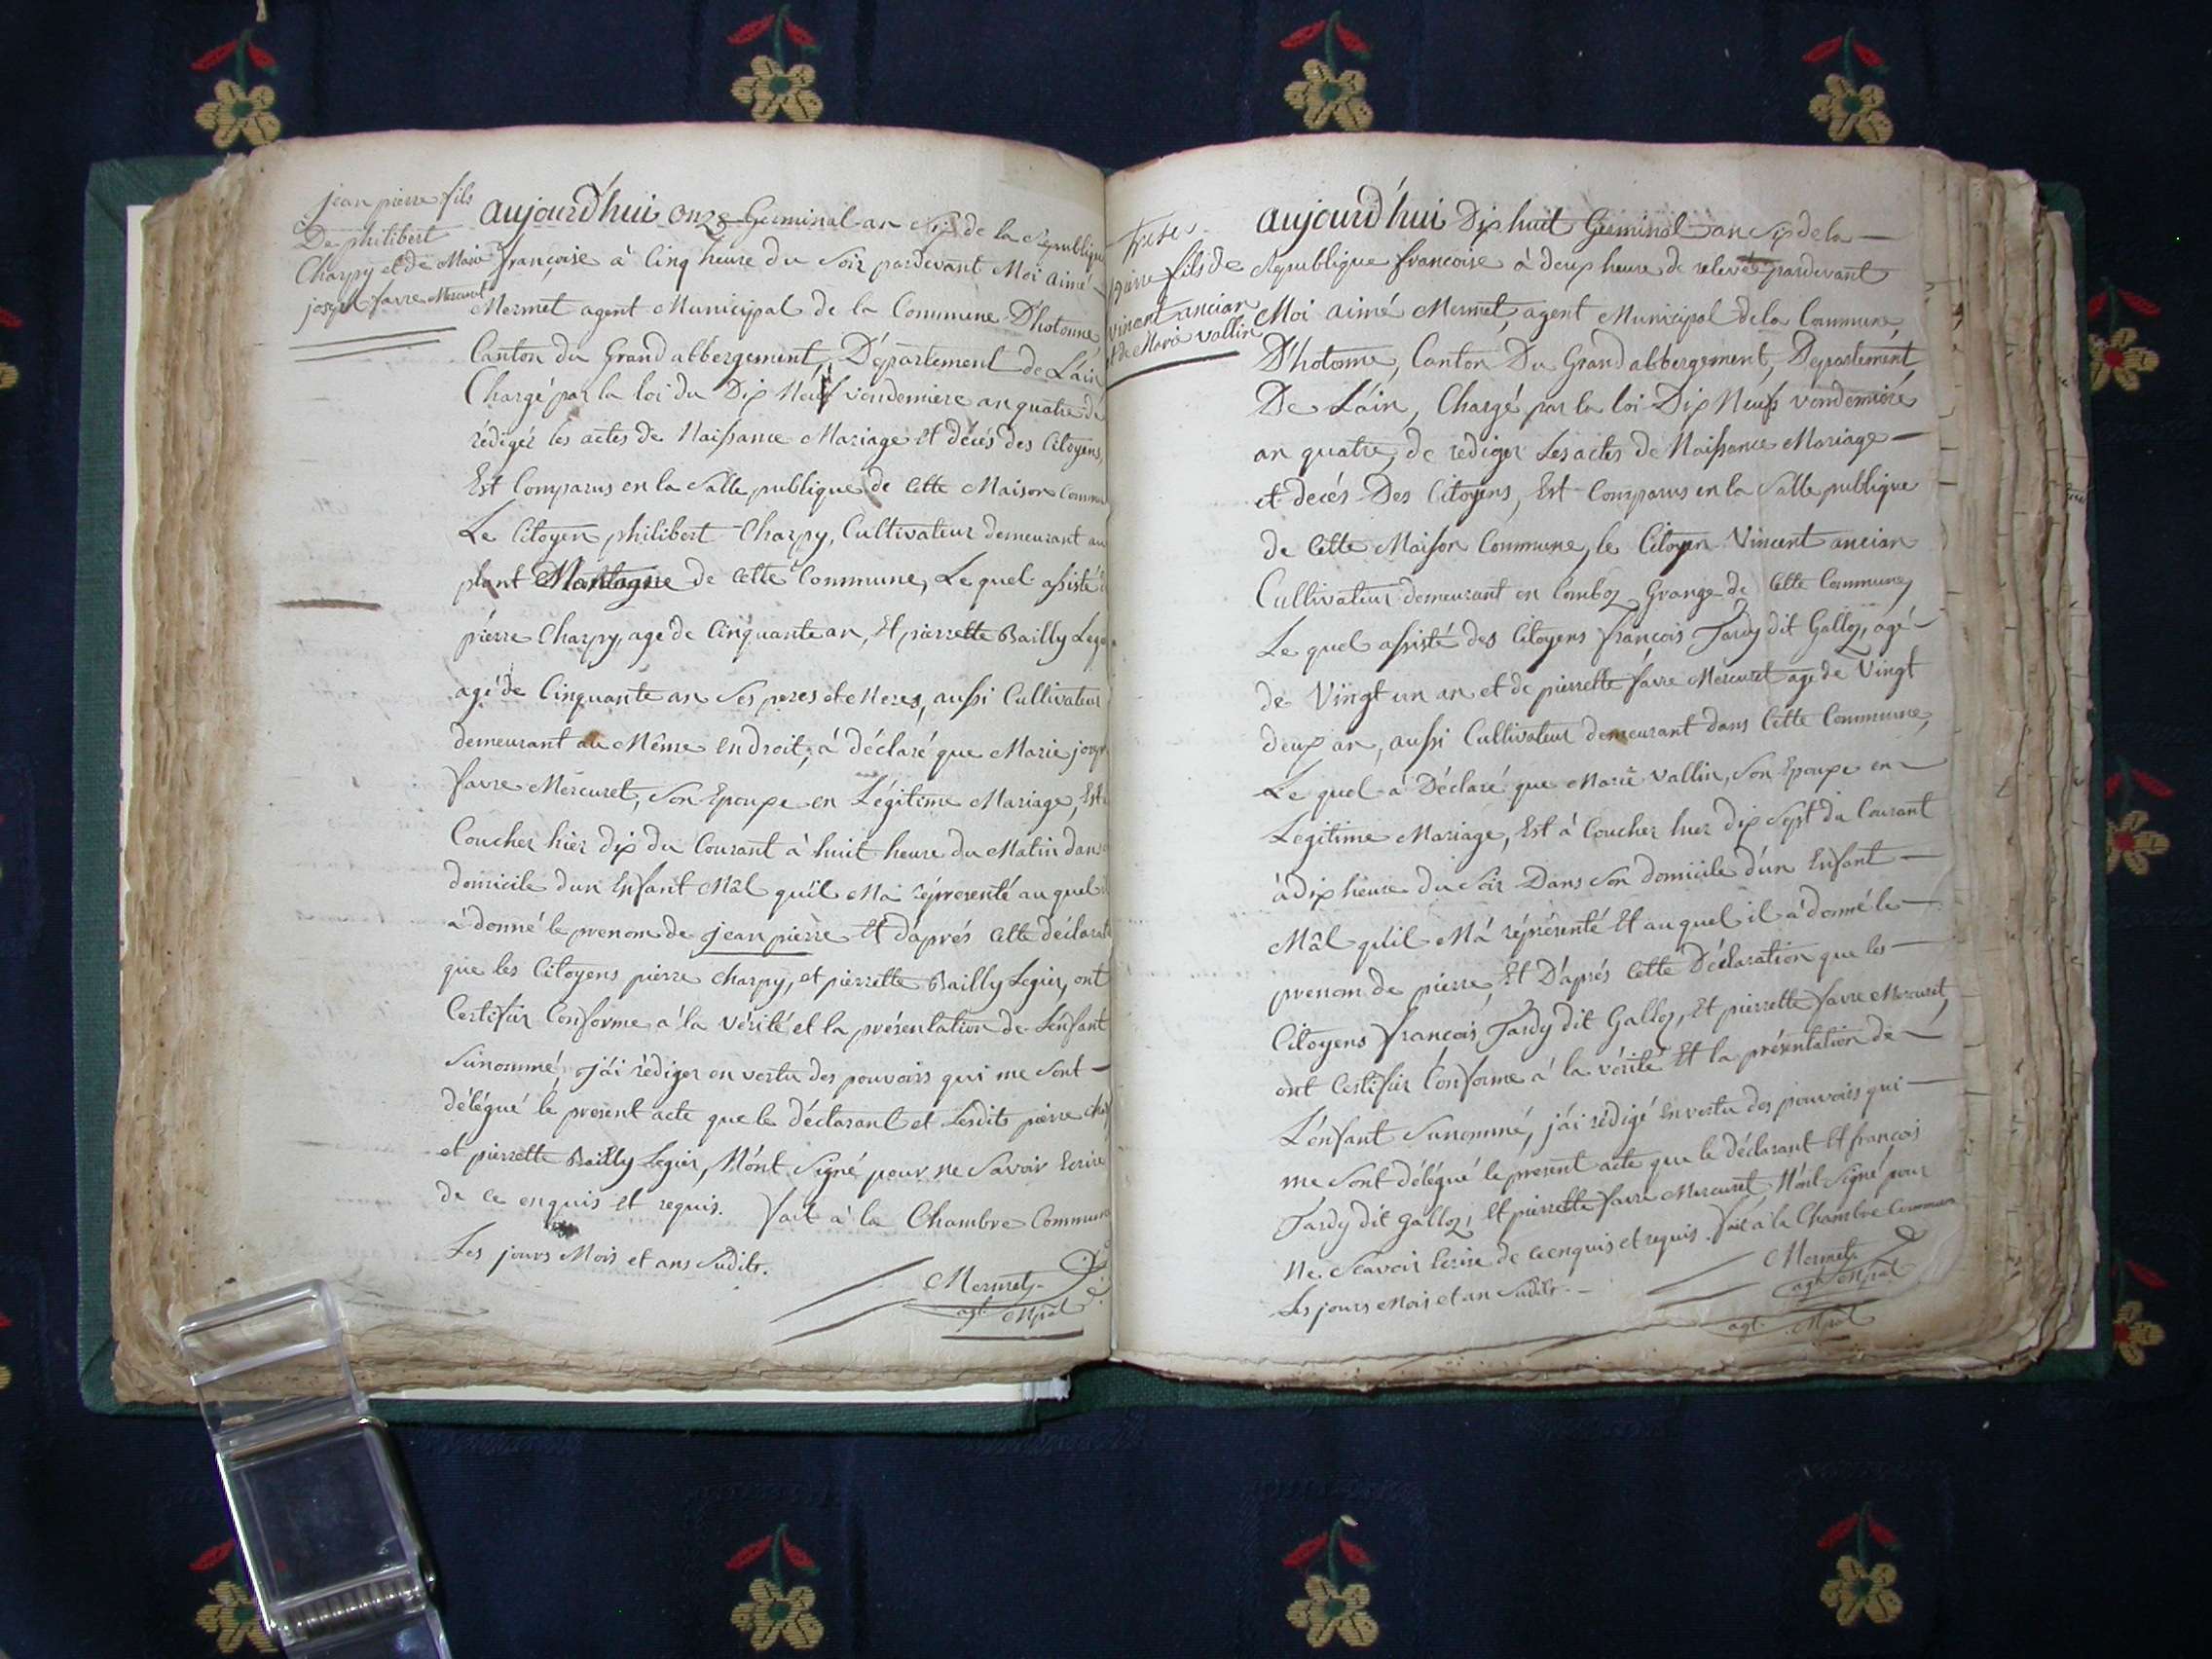 jean pierre fils
De philibert
Charpy et de Marie
joseph favre Mercuret
aujourd'hui onze Germinal an Six de la Republique
françoise à Cinq heure du Soir pardevant Moi aimé
Mermet agent Municipal de la Commune D'hotonne
Canton du Grand abbergement, Département de L'ain
Chargé par la loi du Dix Neuf vendemiere an quatre de
rédiger les actes de Naissance Mariage et décés des Citoyens,
Est Comparus en la Salle publique de Cette Maison Commun
Le Citoyen philibert Charpy, Cultivateur demeurant au
plant Montagne de Cette Commune, Le quel assisté
pierre Charpy, age de Cinquante an, Et pierrette Bailly Leg
agé de Cinquante an Ses peres et Meres, aussi Cultivateur
demeurant au Même endroit, à déclaré que Marie josep
favre Mercuret, Son Epouse en Légitime Mariage, Est
Coucher hier dix du Courant à huit heure du Matin dans
domicile d'un Enfant Mâl qu'il Ma réprésenté au quel
à donné le prenom de jean pierre Et d'aprés Cette déclarat
que les Citoyens pierre Charpy, et pierrette Bailly Legier, ont
Certifiér Conforme a la vérité et la présentation de L'énfant
Sunommé, j'ai rédiger en vertu des pouvoirs qui me Sont
délégué le present acte que le déclarant et Lesdits pierre Char
et pierrette Bailly Legier, N'ont Signé pour ne Savoir Ecrire
de Ce enquis Et requis. fait à la Chambre Commune
Les jours Mois et ans Sudits.
Mermet
agt. Mpal
pierre fils de
vincent ancian
et de Marie vallin
aujourd'hui Dix huit Germinal an Six de la
Republique francoise à deux heure de relevée pardevant
Moi aimé Mermet, agent Municipal de la Commune
D'hotonne, Canton Du Grand abbergement, Departement
De L'ain, Chargé par la loi Dix Neufs vendemiére
an quatre, de rediger Les actes de Naissance Mariage
et decés Des Citoyens, Est Comparus en la Salle publique
de Cette Maison Commune, le Citoyen Vincent ancian
Cultivateur demeurant en Comboz Grange de Cette Commune
Le quel assisté des Citoyens françois Tardy dit Galloz, agé
de Vingt un an et de pierrette favre Mercuret agé de Vingt
deux an, aussi Cultivateur demeurant dans Cette Commune,
Le quel à Déclaré que Marie vallin, Son Epouse en
Legitime Mariage, Est à Coucher hier dix Sept du Courant
à dix heure du Soir Dans Son domicile d'un Enfant
Mâl qu'il M'a réprésenté Et au quel il à donné le
prenom de pierre, Et D'aprés Cette Déclaration que les
Citoyens françois Tardy dit Galloz, Et pierrette favre Mercuret,
ont Certifiér Conforme a la vérité Et la présentation de
L'énfant Sunommé, j'ai rédigé En vertu des pouvoirs qui
me Sont délégué le present acte que le déclarant Et françois
Tardy dit Galloz, Et pierrette favre Mercuret N'ont Signé pour
Ne Scavoir Ecrire de Ce enquis et requis. fait à la Chambre Commune
Les jours Mois et an Sudits.
Mermet
agt Mpal
agt. Mpal